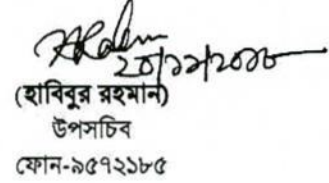 ২০/১১/২০১৮
(হাবিবুর রহমান)
উপসচিব
ফোন-৯৫৭২১৮৫